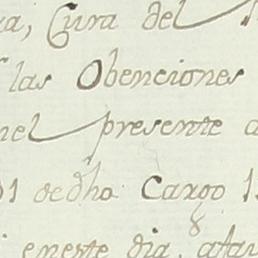 a, Cura del
las Obenciones
nel presente a
1 de dho Cargo 1
i eneste dia, afau